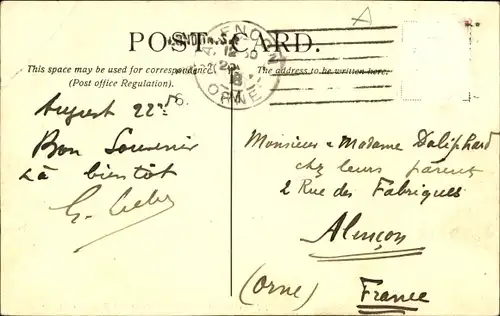 POST CARD.
This space may be used for correspondence
(Post office Regulation).
The address to be written here.
ALENCON
12 30
ORNE
August 22nd
Bon Souvenir
& à bientôt
Monsieur & Madame Daliphard
chez leurs parents
2 Rue des Fabriques
Alençon
(Orne) France